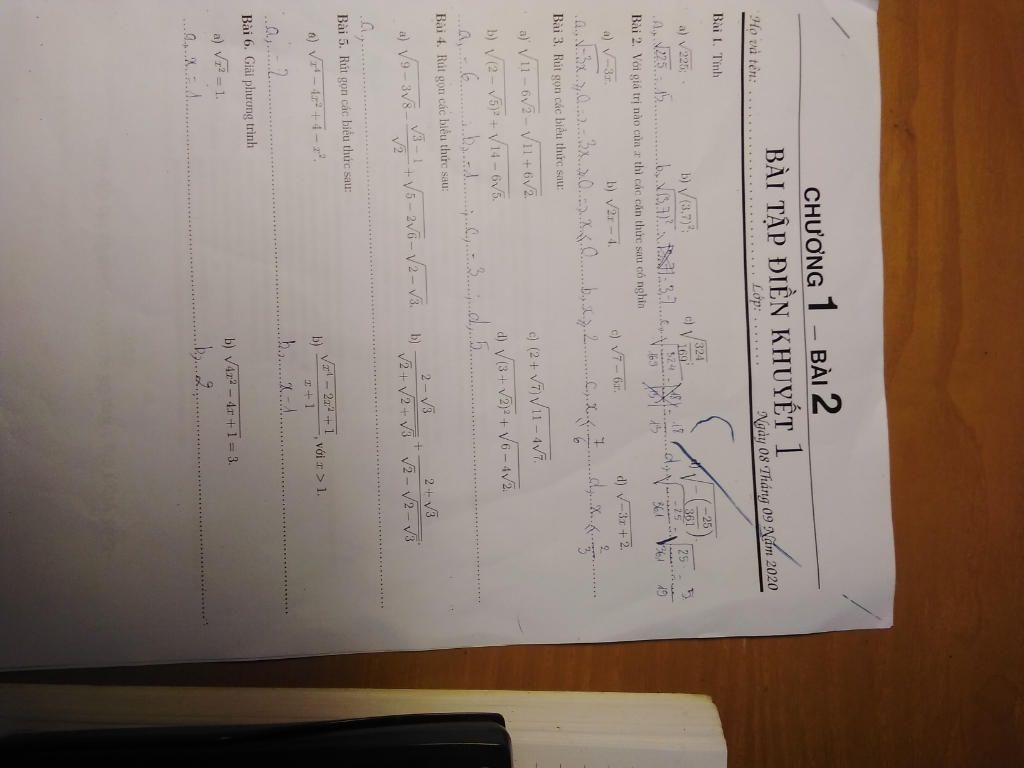 CHƯƠNG 1 – BÀI 2
BÀI TẬP ĐIỀN KHUYẾT 1
Ngày 08 Tháng 09 Năm 2020
Họ và tên: ........ Lớp: ........
Bài 1. Tính
a) √225; b) √(3,7)²; c) √(324/169); d) √(−(−25/361)).
a, √225 = 15 b, √(3,7)² = 3,7 c, √(324/169) = 18/13 d, √(−(−25)/361) = √25/√361 = 5/19
Bài 2. Với giá trị nào của x thì các căn thức sau có nghĩa
a) √(−3x). b) √(2x − 4). c) √(7 − 6x). d) √(−3x + 2).
a, √(−3x) ⩾ 0 ⇒ −3x ⩾ 0 ⇒ x ⩽ 0 b, x ⩾ 2 c, x ⩽ 7/6 d, x ⩽ 2/3
Bài 3. Rút gọn các biểu thức sau:
a) √(11 − 6√2) − √(11 + 6√2). c) (2 + √7)√(11 − 4√7).
b) √((2 − √5)²) + √(14 − 6√5). d) √((3 + √2)²) + √(6 − 4√2).
a, = 6 ; b, = 1 ; c, = 3 ; d, 5
Bài 4. Rút gọn các biểu thức sau:
a) √(9 − 3√8) − (√3 − 1)/√2 + √(5 − 2√6) − √(2 − √3). b) (2 − √3)/(√2 + √(2 + √3)) + (2 + √3)/(√2 − √(2 − √3)).
a,
Bài 5. Rút gọn các biểu thức sau:
a) √(x⁴ − 4x² + 4) − x². b) √(x⁴ − 2x² + 1)/(x + 1), với x > 1.
a, − 2 b, x − 1
Bài 6. Giải phương trình
a) √(x²) = 1. b) √(4x² − 4x + 1) = 3.
a, x = 1 b, 2